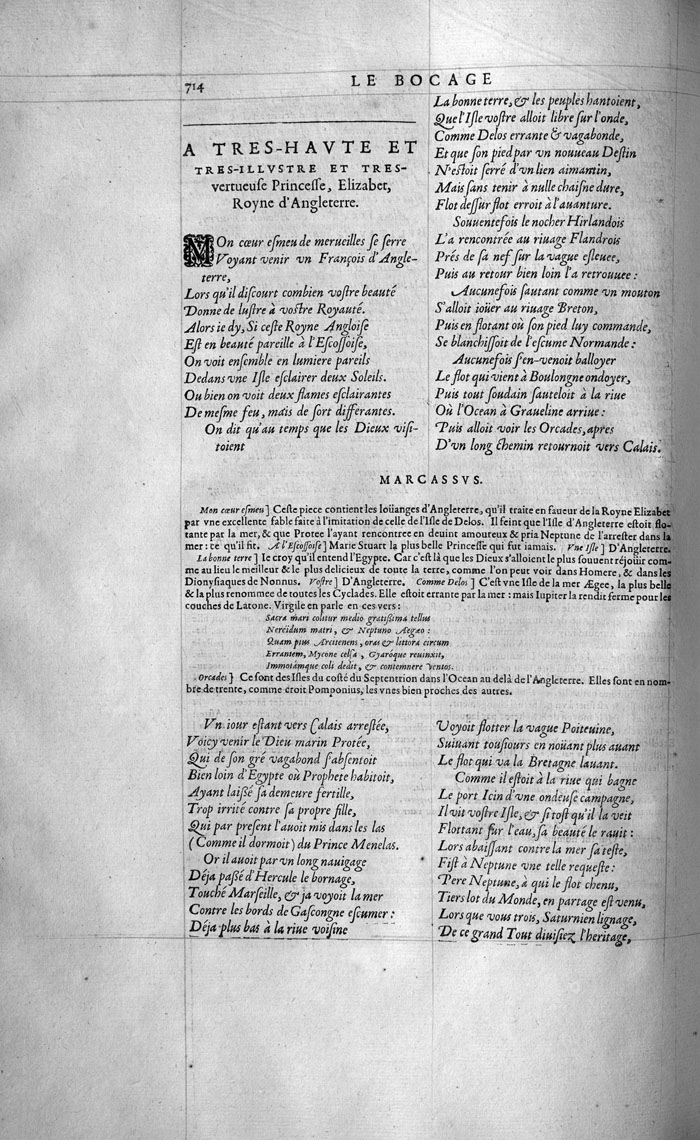 714
LE BOCAGE
A TRES-HAVTE ET
TRES-ILLVSTRE ET TRES-
vertueuse Princesse, Elizabet,
Royne d'Angleterre.
MOn cœur esmeu de merueilles se serre
Voyant venir vn François d'Angle-
terre,
Lors qu'il discourt combien vostre beauté
Donne de lustre à vostre Royauté.
Alors ie dy, Si ceste Royne Angloise
Est en beauté pareille à l'Escossoise,
On voit ensemble en lumiere pareils
Dedans vne Isle esclairer deux Soleils.
Ou bien on voit deux flames esclairantes
De mesme feu, mais de sort differantes.
On dit qu'au temps que les Dieux visi-
toient
La bonne terre, & les peuples hantoient,
Que l'Isle vostre alloit libre sur l'onde,
Comme Delos errante & vagabonde,
Et que son pied par vn nouueau Destin
N'estoit serré d'vn lien aimantin,
Mais sans tenir à nulle chaisne dure,
Flot dessur flot erroit à l'auanture.
Souuentefois le nocher Hirlandois
L'a rencontrée au riuage Flandrois
Prés de sa nef sur la vague esleuee,
Puis au retour bien loin l'a retrouuee :
Aucunefois sautant comme vn mouton
S'alloit ioüer au riuage Breton,
Puis en flotant où son pied luy commande,
Se blanchissoit de l'escume Normande :
Aucunefois s'en-venoit balloyer
Le flot qui vient à Boulongne ondoyer,
Puis tout soudain sauteloit à la riue
Où l'Ocean à Graueline arriue :
Puis alloit voir les Orcades, apres
D'vn long chemin retournoit vers Calais.
MARCASSVS.
Mon cœur esmeu ] Ceste piece contient les loüanges d'Angleterre, qu'il traite en faueur de la Royne Elizabet
par vne excellente fable faite à l'imitation de celle de l'Isle de Delos. Il feint que l'Isle d'Angleterre estoit flo-
tante par la mer, & que Protee l'ayant rencontree en deuint amoureux & pria Neptune de l'arrester dans la
mer : ce qu'il fit. A l'Escossoise ] Marie Stuart la plus belle Princesse qui fut iamais. Vne Isle ] D'Angleterre.
La bonne terre ] Ie croy qu'il entend l'Egypte. Car c'est là que les Dieux s'alloient le plus souuent réjouïr com-
me au lieu le meilleur & le plus delicieux de toute la terre, comme l'on peut voir dans Homere, & dans les
Dionysiaques de Nonnus. Vostre ] D'Angleterre. Comme Delos ] C'est vne Isle de la mer Ægee, la plus belle
& la plus renommee de toutes les Cyclades. Elle estoit errante par la mer : mais Iupiter la rendit ferme pour les
couches de Latone. Virgile en parle en ces vers :
Sacra mari colitur medio gratissima tellus
Nereidum matri, & Neptuno Aegæo :
Quam pius Arcitenens, oras & littora circum
Errantem, Mycone celsa, Gyaróque reuinxit,
Immotámque coli dedit, & contemnere ventos.
Orcades ] Ce sont des Isles du costé du Septentrion dans l'Ocean au delà de l'Angleterre. Elles sont en nom-
bre de trente, comme croit Pomponius, les vnes bien proches des autres.
Vn iour estant vers Calais arrestée,
Voicy venir le Dieu marin Protée,
Qui de son gré vagabond s'absentoit
Bien loin d'Egypte où Prophete habitoit,
Ayant laissé sa demeure fertille,
Trop irrité contre sa propre fille,
Qui par present l'auoit mis dans les las
(Comme il dormoit) du Prince Menelas.
Or il auoit par vn long nauigage
Déja passé d'Hercule le bornage,
Touché Marseille, & ja voyoit la mer
Contre les bords de Gascongne escumer :
Déja plus bas à la riue voisine
Voyoit flotter la vague Poiteuine,
Suiuant tousiours en noüant plus auant
Le flot qui va la Bretagne lauant.
Comme il estoit à la riue qui bagne
Le port Icin d'vne ondeuse campagne,
Il vit vostre Isle, & si tost qu'il la veit
Flottant sur l'eau, sa beauté le rauit :
Lors abaissant contre la mer sa teste,
Fist à Neptune vne telle requeste :
Pere Neptune, à qui le flot chenu,
Tiers lot du Monde, en partage est venu,
Lors que vous trois, Saturnien lignage,
De ce grand Tout diuisiez l'heritage,